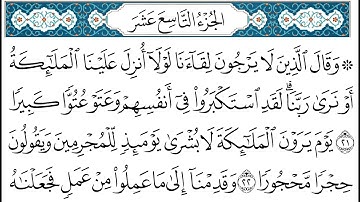 الجُزْءُ التَّاسِعَ عَشَرَ
۞ وَقَالَ ٱلَّذِينَ لَا يَرْجُونَ لِقَآءَنَا لَوْلَآ أُنزِلَ عَلَيْنَا ٱلْمَلَٰٓئِكَةُ
أَوْ نَرَىٰ رَبَّنَا ۗ لَقَدِ ٱسْتَكْبَرُوا۟ فِىٓ أَنفُسِهِمْ وَعَتَوْ عُتُوًّا كَبِيرًا
٢١ يَوْمَ يَرَوْنَ ٱلْمَلَٰٓئِكَةَ لَا بُشْرَىٰ يَوْمَئِذٍ لِّلْمُجْرِمِينَ وَيَقُولُونَ
حِجْرًا مَّحْجُورًا ٢٢ وَقَدِمْنَآ إِلَىٰ مَا عَمِلُوا۟ مِنْ عَمَلٍ فَجَعَلْنَٰهُ